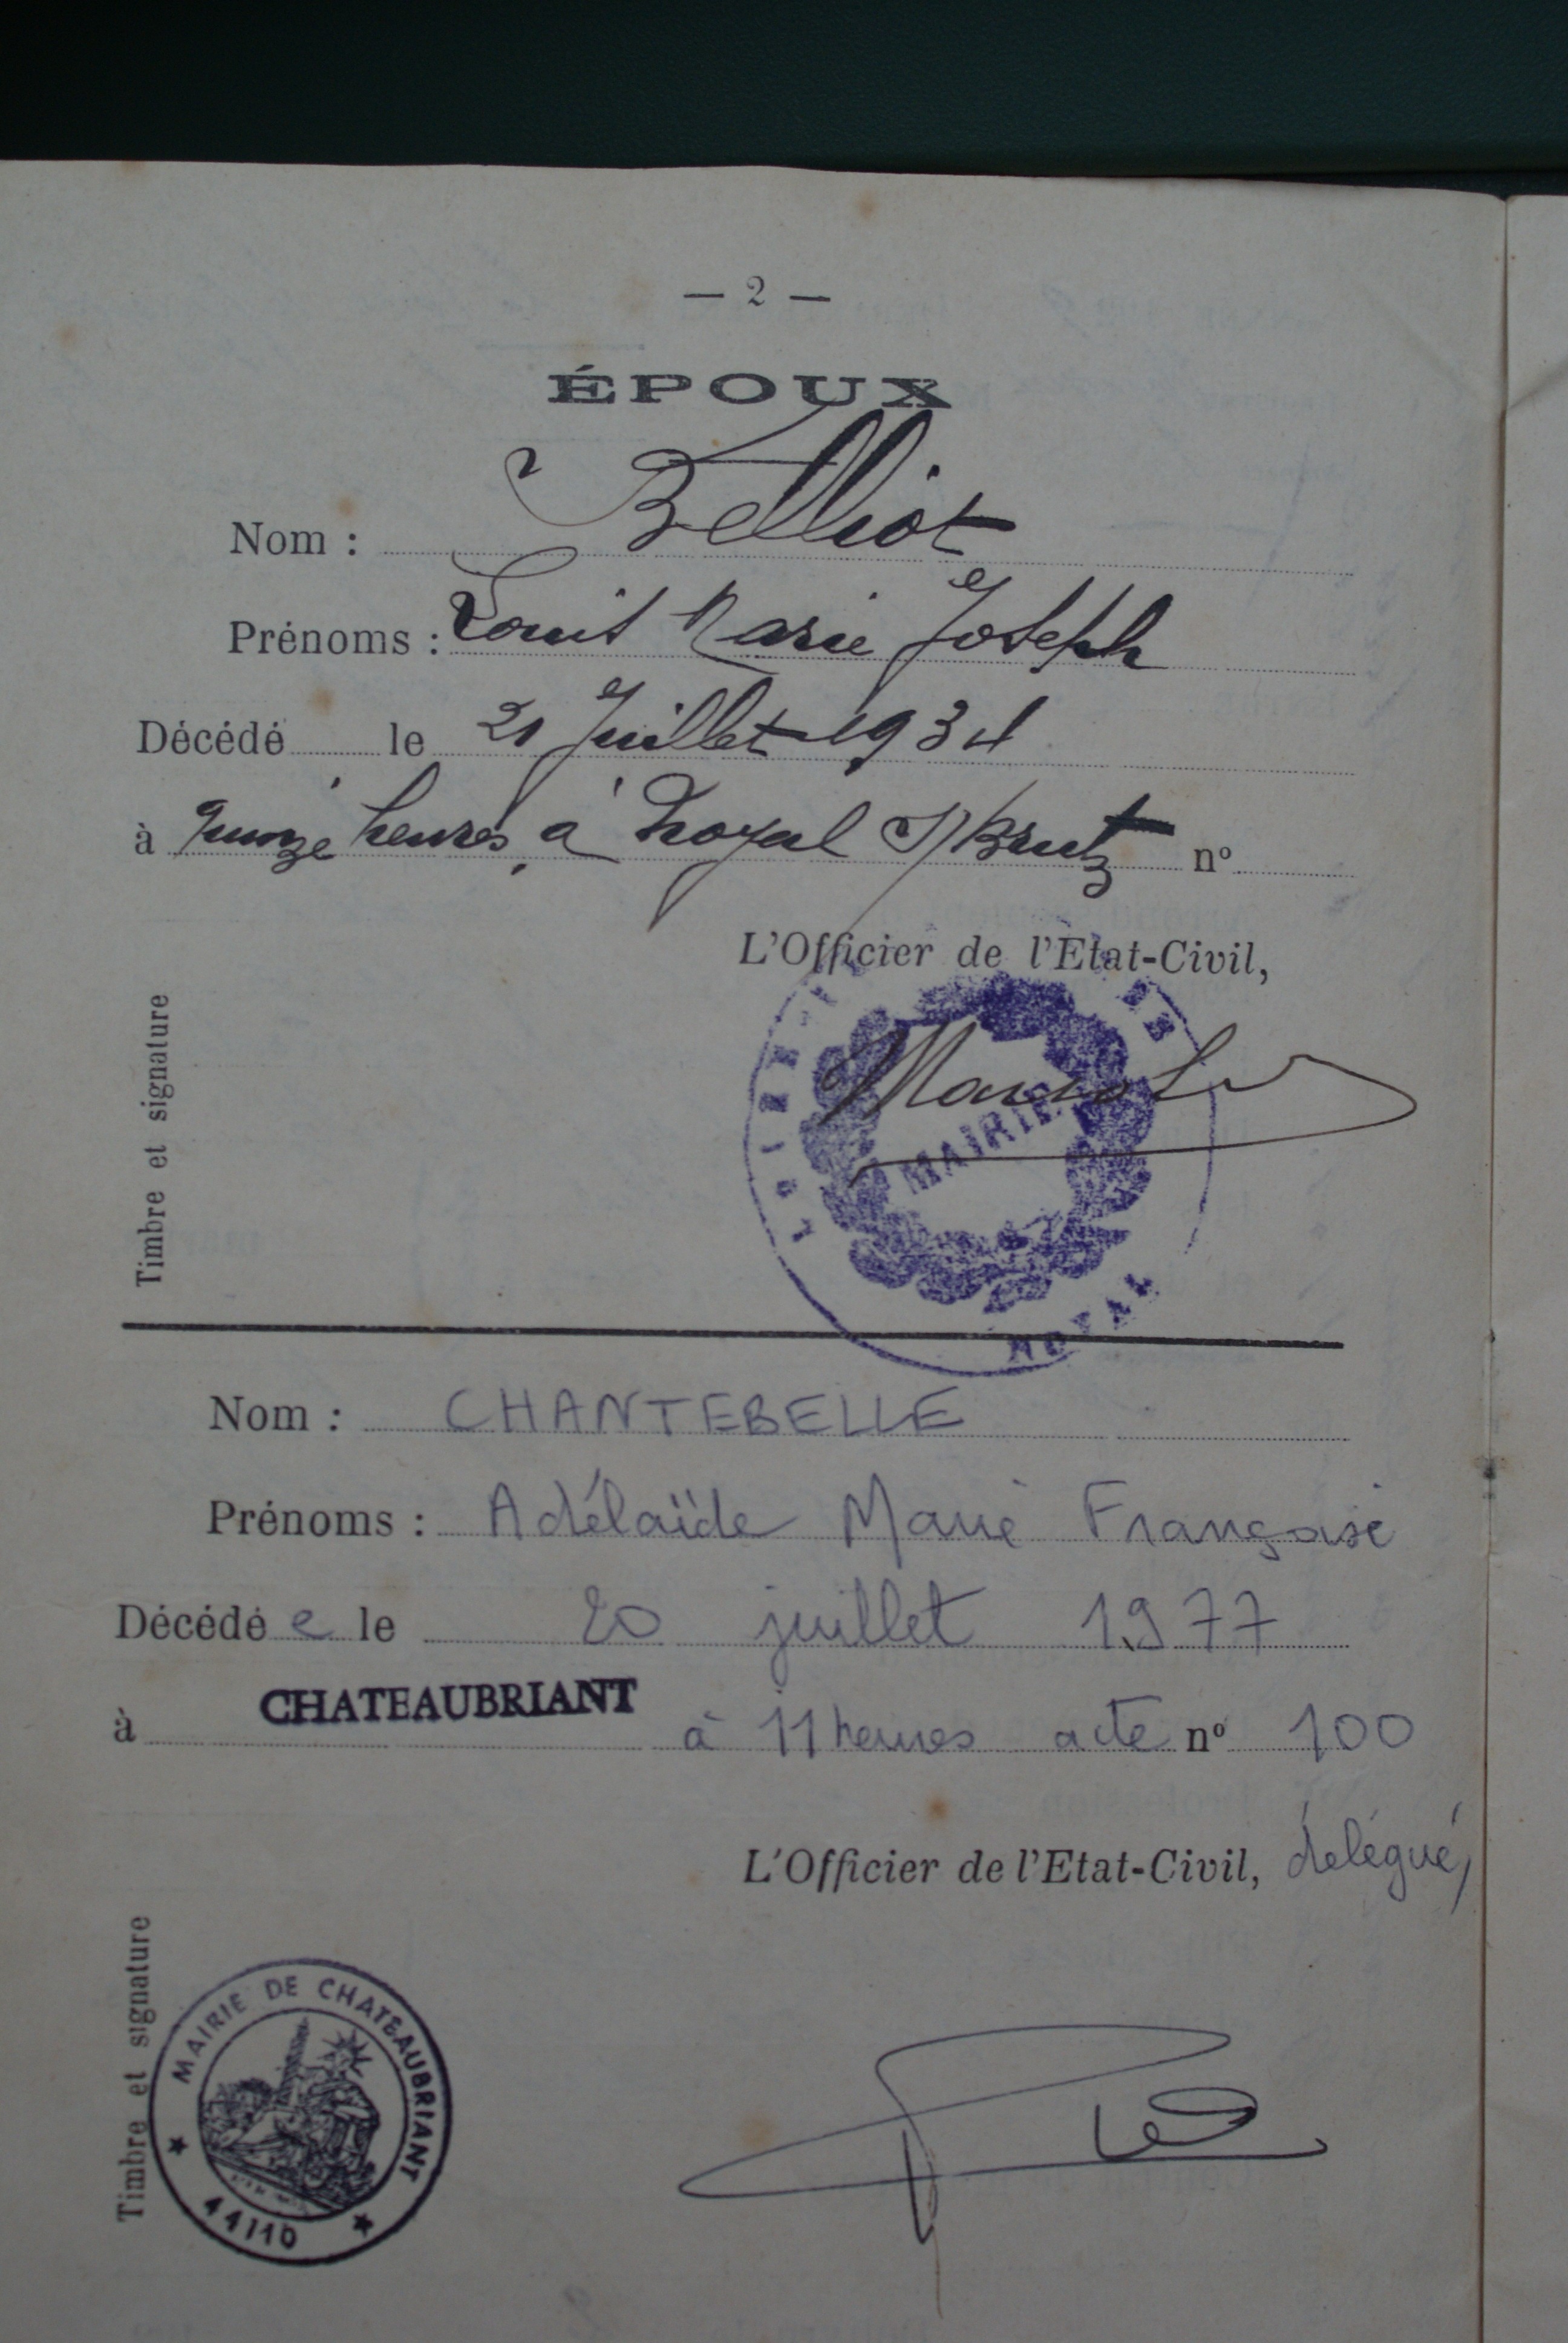 — 2 —
ÉPOUX
Nom : Belliot
Prénoms : Louis Marie Joseph
Décédé le 21 Juillet 1934
à quinze heures, à Noyal s/ Brutz nº
L'Officier de l'Etat-Civil,
Timbre et signature
LOIRE-
MAIRIE
NOYAL
Nom : CHANTEBELLE
Prénoms : Adélaïde Marie Françoise
Décédé e le 20 juillet 1977
à CHATEAUBRIANT à 11 heures acte nº 100
L'Officier de l'Etat-Civil, délégué,
Timbre et signature
MAIRIE DE CHATEAUBRIANT
★ 44110 ★